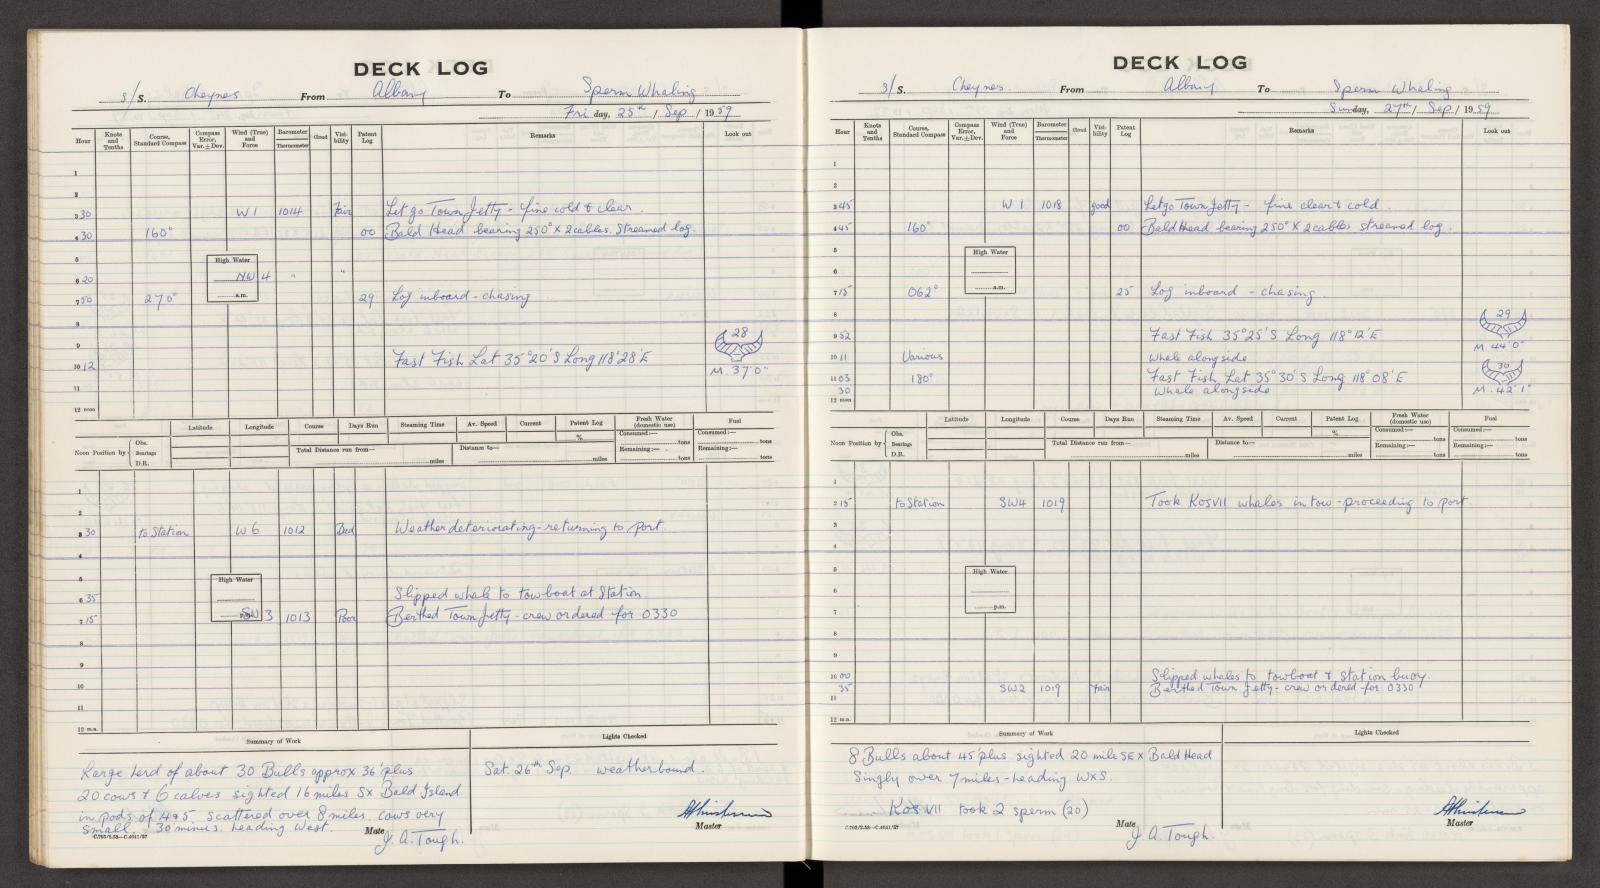 DECK LOG
s/S. Cheynes From Albany To Sperm Whaling
Fri day, 25th / Sep / 1959
Hour Knots and Tenths Course, Standard Compass Compass Error, Var. ± Dev. Wind (True) and Force Barometer Thermometer Cloud Visibility Patent Log Remarks Look out
1
2
3 30 W 1 1014 Fair Let go Town Jetty - fine cold & clear.
4 30 160° 00 Bald Head bearing 250° X 2 cables. Streamed log.
5 High Water
6 20 NW 4 " "
a.m.
7 50 270° 29 Log inboard - chasing
8
28
9
10 12 Fast Fish Lat 35°20'S Long 118°28'E
M. 37'0"
11
12 noon
Latitude Longitude Course Days Run Steaming Time Av. Speed Current Patent Log Fresh Water (domestic use) Fuel
% Consumed:— tons Consumed:— tons
Noon Position by Obs. Bearings D.R. Total Distance run from— miles Distance to— miles Remaining:— tons Remaining:— tons
1
2
3 30 to Station W 6 1012 Bad Weather deteriorating - returning to port
4
5 High Water
6 35 Slipped whale to towboat at Station
p.m.
7 15 SW 3 1013 Poor Berthed Town Jetty - crew ordered for 0330
8
9
10
11
12 m.n.
Summary of Work Lights Checked
Large herd of about 30 Bulls approx 36' plus
20 cows & 6 calves sighted 16 miles SX Bald Island
in pods of 4 & 5. scattered over 8 miles. cows very
small. 30 minus. heading West.
Sat. 26th Sep. weatherbound.
Mate J. A. Tough.
Master
C.702/2.58—C.4641/57
DECK LOG
s/S. Cheynes From Albany To Sperm Whaling
Sunday, 27th / Sep / 1959
Hour Knots and Tenths Course, Standard Compass Compass Error, Var. ± Dev. Wind (True) and Force Barometer Thermometer Cloud Visibility Patent Log Remarks Look out
1
2
3 45 W 1 1018 good Let go Town Jetty - fine clear & cold
4 45 160° 00 Bald Head bearing 250° X 2 cables streamed log.
5 High Water
6
a.m.
7 15 062° 25 Log inboard - chasing
8
29
9 52 Fast Fish 35°25'S Long 118°12'E
M 44'0"
10 11 Various whale alongside
30
11 03 180° Fast Fish Lat 35°30'S Long 118°08'E
30 Whale alongside M. 42'1"
12 noon
Latitude Longitude Course Days Run Steaming Time Av. Speed Current Patent Log Fresh Water (domestic use) Fuel
% Consumed:— tons Consumed:— tons
Noon Position by Obs. Bearings D.R. Total Distance run from— miles Distance to— miles Remaining:— tons Remaining:— tons
1
2 15 to Station SW4 1019 Took KosVII whales in tow - proceeding to port
3
4
5 High Water
6
p.m.
7
8
9
10 00 Slipped whales to towboat & Station buoy.
35 SW2 1019 Fair Berthed Town Jetty - crew ordered for 0330
11
12 m.n.
Summary of Work Lights Checked
8 Bulls about 45' plus sighted 20 mile SE X Bald Head
Singly over 7 miles - heading WXS.
Kos VII took 2 sperm (20)
Mate J. A. Tough.
Master
C.702/2.58—C.4641/57